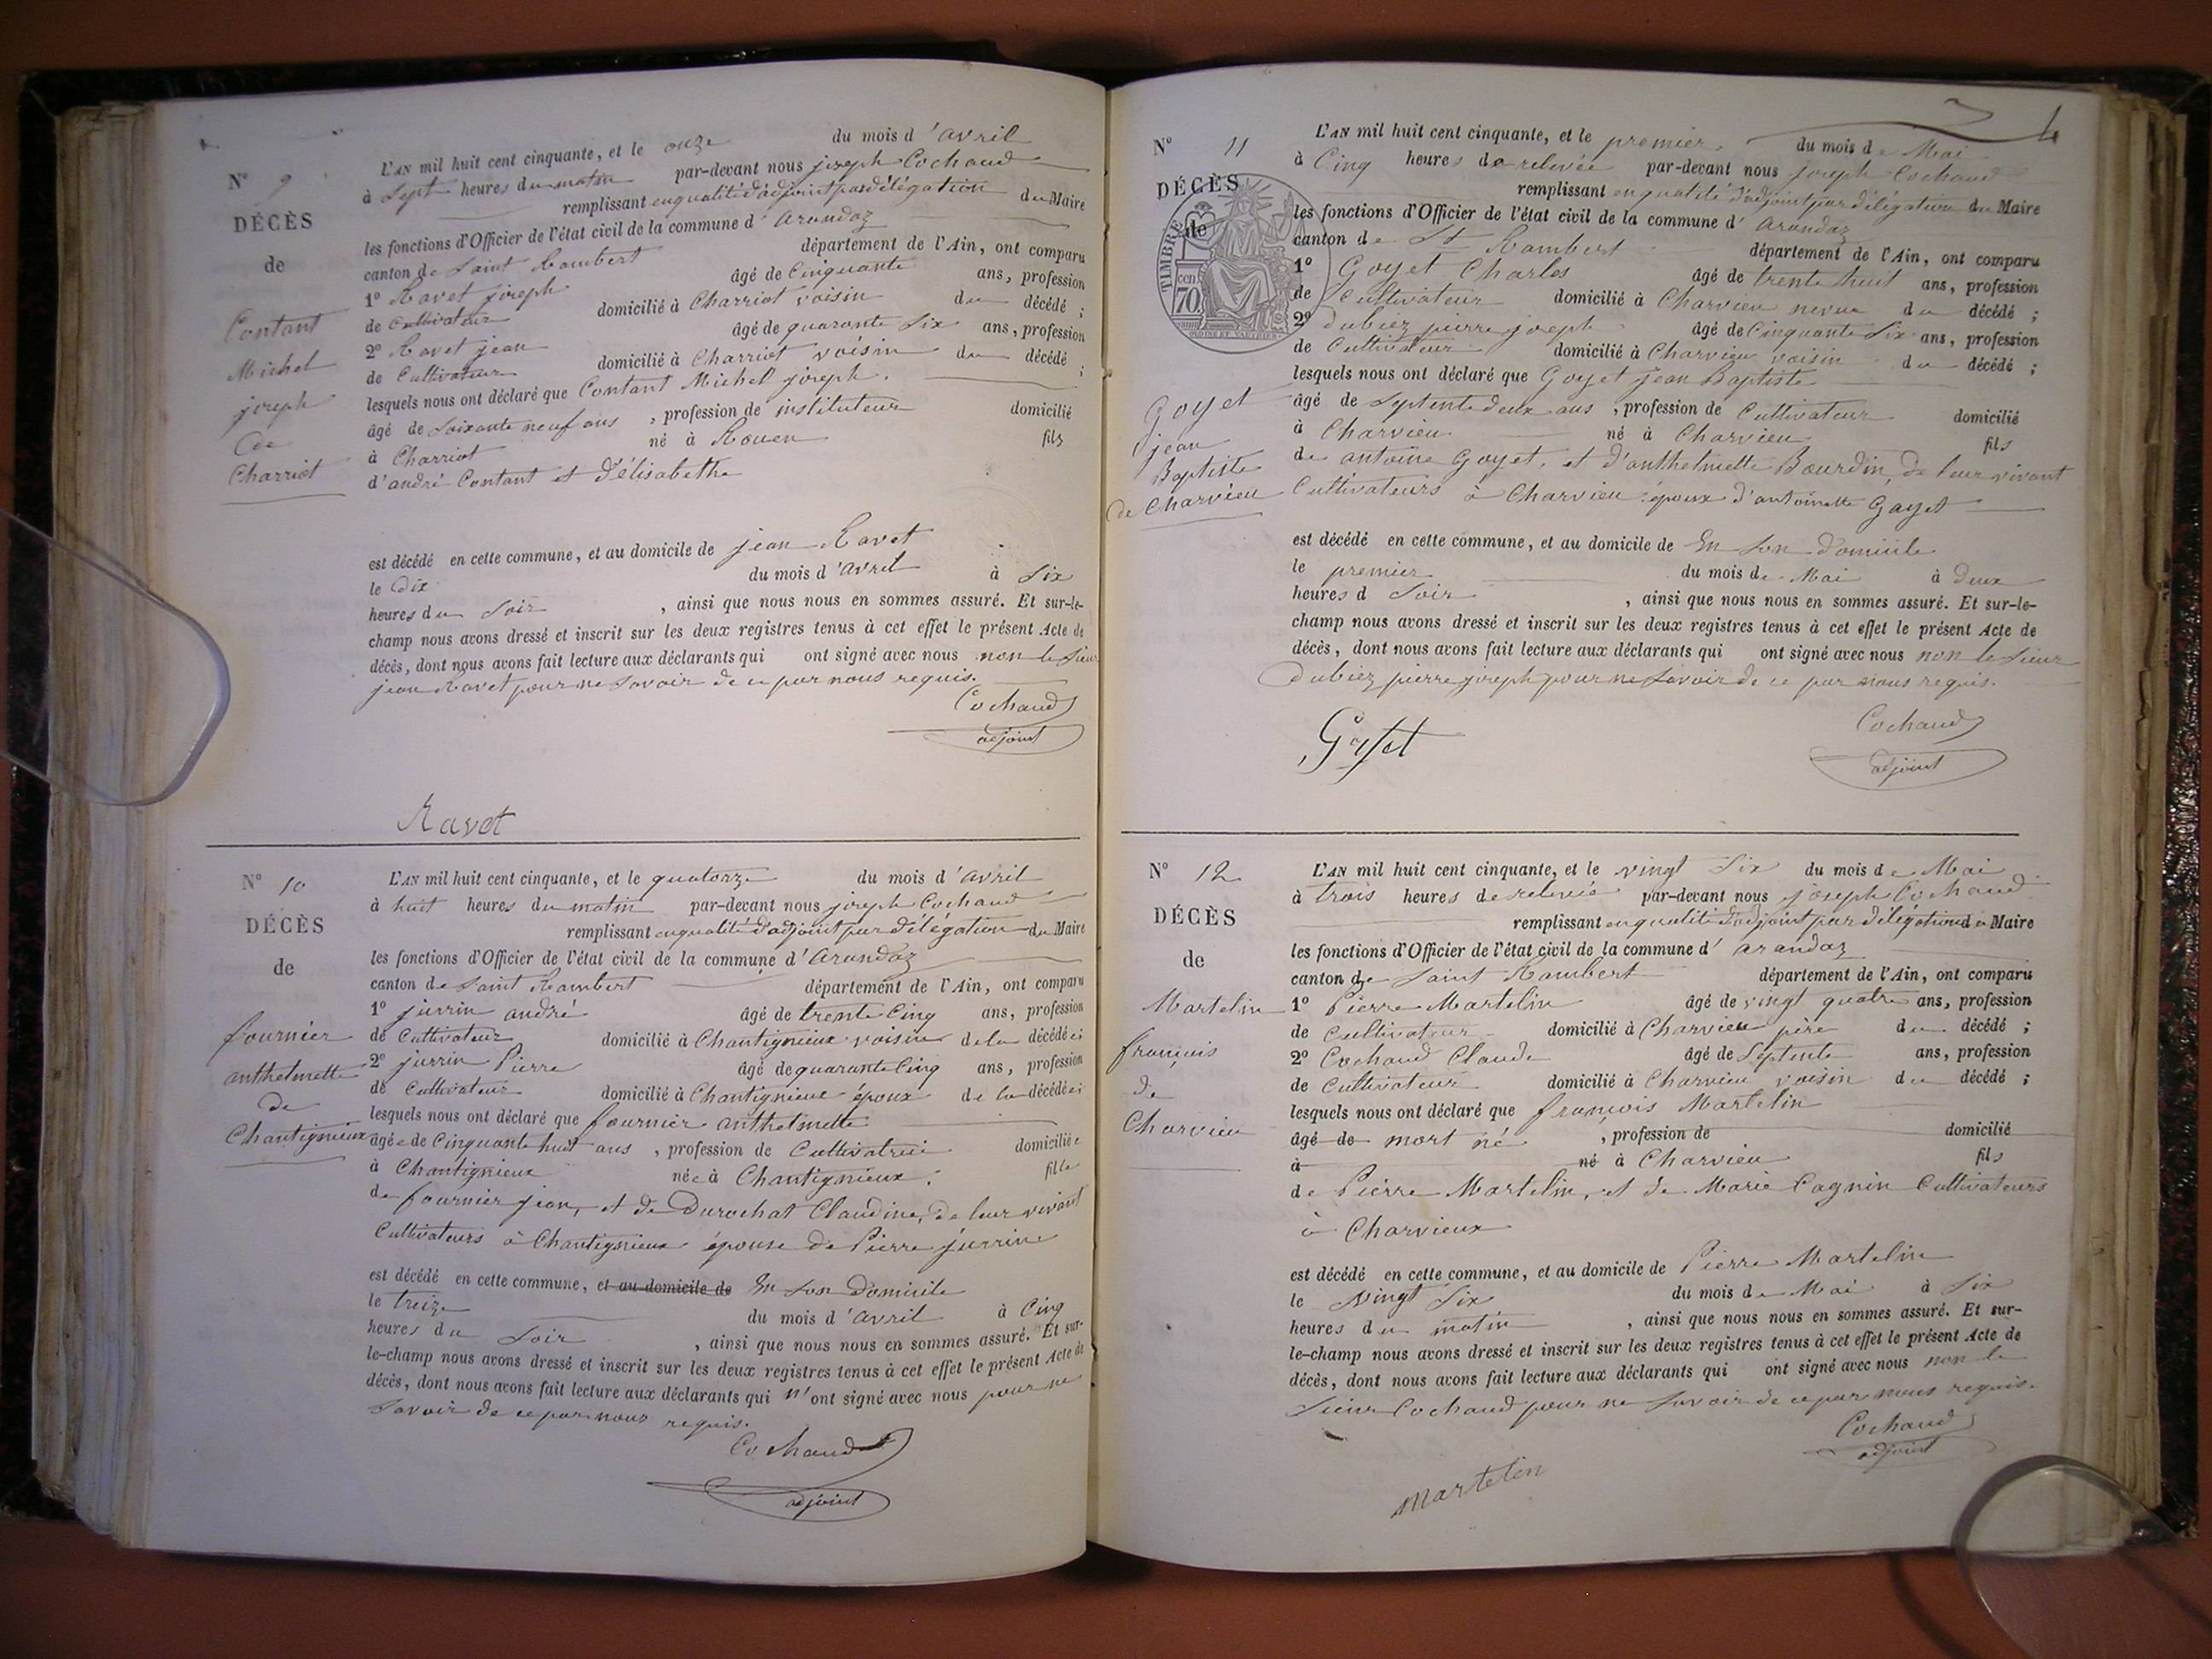 N° 9
DÉCÈS
de
Contant
Michel
joseph
de
Charriot
L'AN mil huit cent cinquante, et le onze du mois d'avril
à Sept heures du matin par-devant nous joseph Cochaud
remplissant en qualité d'adjoint par délégation du Maire
les fonctions d'Officier de l'état civil de la commune d'arandaz
canton de Saint Rambert département de l'Ain, ont comparu
1° Ravet joseph âgé de Cinquante ans, profession
de Cultivateur domicilié à Charriot voisin du décédé ;
2° Ravet jean âgé de quarante Six ans, profession
de Cultivateur domicilié à Charriot voisin du décédé ;
lesquels nous ont déclaré que Contant Michel joseph.
âgé de Soixante neuf ans , profession de instituteur domicilié
à Charriot né à Rouen fils
d'andré Contant et d'élisabethe
est décédé en cette commune, et au domicile de jean Ravet
le dix du mois d'avril à Six
heures du Soir , ainsi que nous nous en sommes assuré. Et sur-le-
champ nous avons dressé et inscrit sur les deux registres tenus à cet effet le présent Acte de
décès, dont nous avons fait lecture aux déclarants qui ont signé avec nous non le Sieur
jean Ravet pour ne Savoir de ce par nous requis.
Cochaud
adjoint
Ravet
N° 10
DÉCÈS
de
fournier
anthelmette
de
Chantignieux
L'AN mil huit cent cinquante, et le quatorze du mois d'avril
à huit heures du matin par-devant nous joseph Cochaud
remplissant en qualité d'adjoint par délégation du Maire
les fonctions d'Officier de l'état civil de la commune d'arandaz
canton de Saint Rambert département de l'Ain, ont comparu
1° jurrin andré âgé de trente Cinq ans, profession
de Cultivateur domicilié à Chantignieux voisin de la décédée ;
2° jurrin Pierre âgé de quarante Cinq ans, profession
de Cultivateur domicilié à Chantignieux époux de la décédée ;
lesquels nous ont déclaré que fournier anthelmette
âgée de Cinquante huit ans , profession de Cultivatrice domiciliée
à Chantignieux née à Chantignieux. fille
de fournier jean, et de Durochat Claudine, de leur vivant
Cultivateurs à Chantignieux épouse de Pierre jurrin
est décédé en cette commune, et au domicile de En Son domicile
le treize du mois d'avril à Cinq
heures du Soir , ainsi que nous nous en sommes assuré. Et sur-
le-champ nous avons dressé et inscrit sur les deux registres tenus à cet effet le présent Acte de
décès, dont nous avons fait lecture aux déclarants qui n'ont signé avec nous pour ne
Savoir de ce par nous requis.
Cochaud
adjoint
4
N° 11
DÉCÈS
de
TIMBRE
70 cen.
Goyet
jean
Baptiste
de Charvieu
L'AN mil huit cent cinquante, et le premier du mois de Mai
à Cinq heures de relevée par-devant nous joseph Cochaud
remplissant en qualité d'adjoint par délégation du Maire
les fonctions d'Officier de l'état civil de la commune d'arandaz
canton de St Rambert département de l'Ain, ont comparu
1° Goyet Charles âgé de trente huit ans, profession
de Cultivateur domicilié à Charvieu neveu du décédé ;
2° dubiez pierre joseph âgé de Cinquante Six ans, profession
de Cultivateur domicilié à Charvieu voisin du décédé ;
lesquels nous ont déclaré que Goyet jean Baptiste
âgé de Septente deux ans , profession de Cultivateur domicilié
à Charvieu né à Charvieu fils
de antoine Goyet, et d'anthelmette Bourdin, de leur vivant
Cultivateurs à Charvieu époux d'antoinette Goyet
est décédé en cette commune, et au domicile de En Son domicile
le premier du mois de Mai à deux
heures d Soir , ainsi que nous nous en sommes assuré. Et sur-le-
champ nous avons dressé et inscrit sur les deux registres tenus à cet effet le présent Acte de
décès, dont nous avons fait lecture aux déclarants qui ont signé avec nous non le Sieur
dubiez pierre joseph pour ne Savoir de ce par nous requis.
Goyet
Cochaud
adjoint
N° 12
DÉCÈS
de
Martelin
françois
de
Charvieu
L'AN mil huit cent cinquante, et le vingt Six du mois de Mai
à trois heures de relevée par-devant nous joseph Cochaud
remplissant en qualité d'adjoint par délégation du Maire
les fonctions d'Officier de l'état civil de la commune d'arandaz
canton de Saint Rambert département de l'Ain, ont comparu
1° Pierre Martelin âgé de vingt quatre ans, profession
de Cultivateur domicilié à Charvieu père du décédé ;
2° Cochaud Claude âgé de Septente ans, profession
de Cultivateur domicilié à Charvieu voisin du décédé ;
lesquels nous ont déclaré que françois Martelin
âgé de mort né , profession de domicilié
à né à Charvieu fils
de Pierre Martelin, et de Marie Cagnin Cultivateurs
à Charvieux
est décédé en cette commune, et au domicile de Pierre Martelin
le Vingt Six du mois de Mai à Six
heures du matin , ainsi que nous nous en sommes assuré. Et sur-
le-champ nous avons dressé et inscrit sur les deux registres tenus à cet effet le présent Acte de
décès, dont nous avons fait lecture aux déclarants qui ont signé avec nous non le
Sieur Cochaud pour ne Savoir de ce par nous requis.
Cochaud
adjoint
Martelin